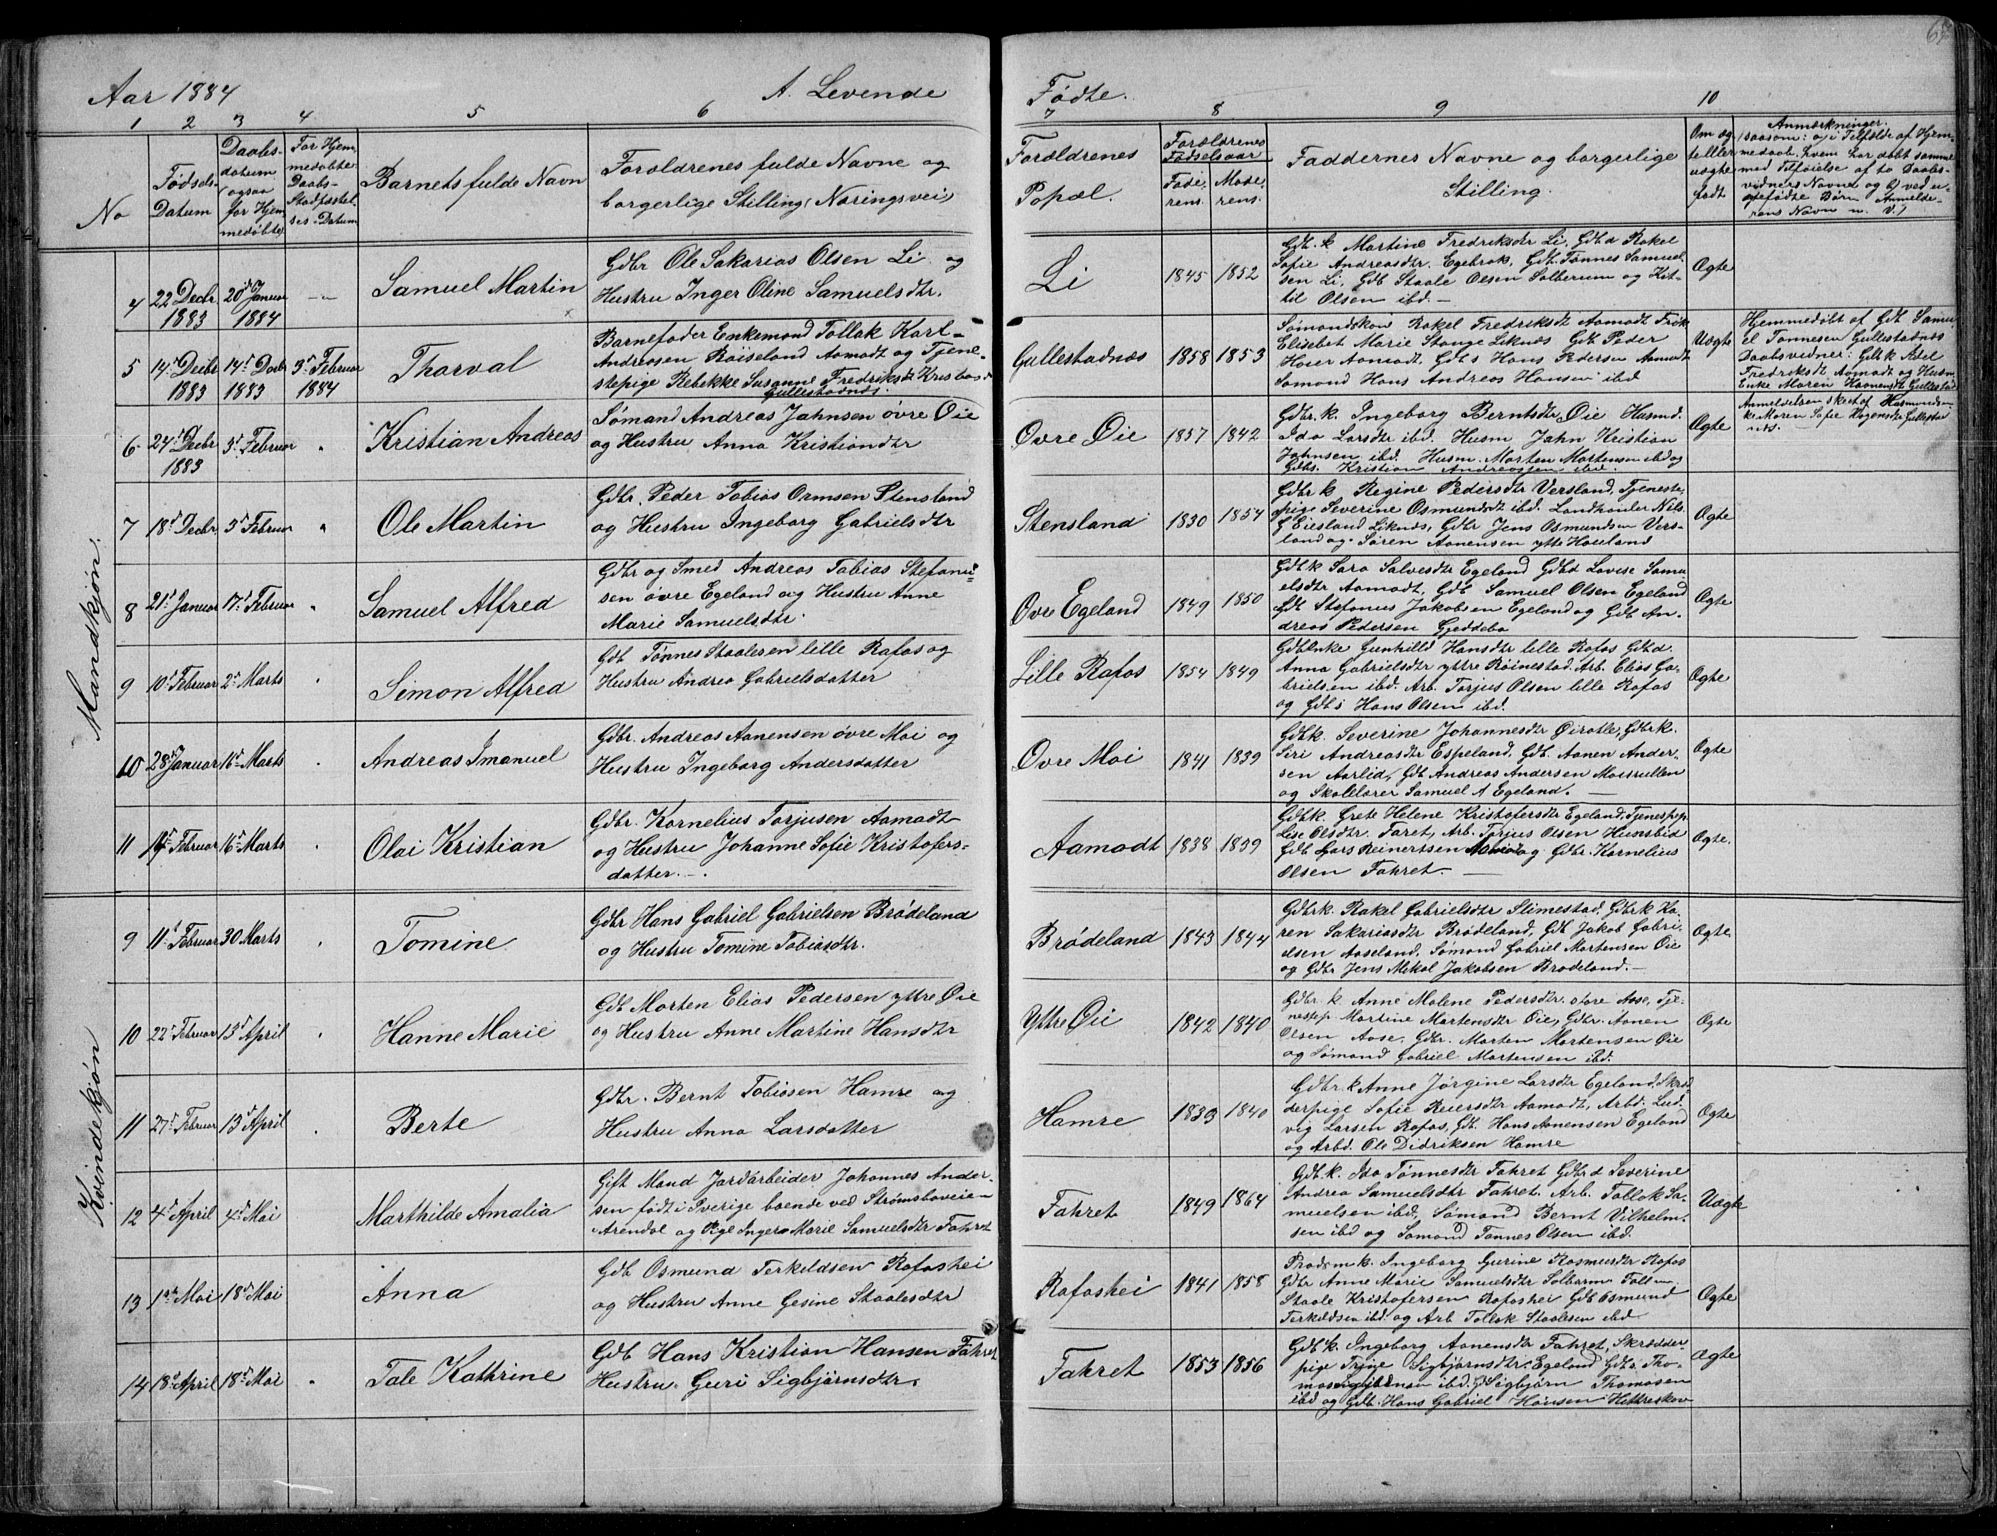 Aar 1884
A. Levende
Fødte.
1 2 3 4 5 6 7 8 9 10
No
Fødsels-
Datum
Daabs-
datum
(ogsaa
for Hjem
medøbte)
For Hjem
medøbte
Daabs-
Stadfæstel-
ses-Datum
Barnets fulde Navn
Forældrenes fulde Navne og
borgerlige Stilling (Næringsvei)
Forældrenes
Bopæl.
Forældrenes
Fødselsaar
Fade-
rens.
Mode-
rens.
Faddernes Navne og borgerlige
Stilling.
Om æg-
te eller
uægte
født
Anmærkninger.
(saasom: a) i Tilfælde af Hjem-
medaab, hvem har døbt samme
med Tilføielse af to Daabs-
vidners Navne og b) ved u-
ægefødte Børn Anmelde-
rens Navn m. v.)
Mandkjøn.
4
22 Decbr
1883
20d Januar
1884
Samuel Martin
Gdbr Ole Sakarias Olsen Li og
Hustru Inger Oline Samuelsdtr.
Li
1845 1852
Gdb.k Martine Fredriksdtr Li, Gdb.d Rakel
Sofie Andreasdtr. Egebrok, Gdb. Tønnes Samuel
sen Li, Gdb Staale Olsen Solberum og Kit-
til Olsen ibd.
Ægte
5
14d Decbr
1883
14d Decbr
1883
3d Februar
1884
Thorval
Barnefader Enkemand Tollak Karl-
Andreasen Røiseland Aamodt og Tjene-
stepige Rebekke Susanne Fredriksdt Kirsbos
Gullestadnæs.
Gullestadnæs
1858 1853
Sømandskon Rakel Fredriksdt Aamodt Frøk
Elisebet Marie Stange Liknes Gdb Peder
Høier Aamodt. Gdb.s Hans Pedersen Aamodt
Sømand Hans Andreas Hansen ibd
Uægte
Hjemmedøbt af Gdb Samu
el Tønnesen Gullestadnæs
Daabsvidner: Gdb.k Abel
Fredriksdt Aamodt og Husm
Enke Maren Haanensdt Gullestad
Anmeldelsen skeet af Husmands-
k. Maren Sofie Hagensdt Gullestad
næs.
6
24d Decbr
1883
3d Februar
Kristian Andreas
Sømand Andreas Jahnsen øvre Øie
og Hustru Anna Kristiandtr
Øvre Øie
1857 1842
Gdbr.k. Ingeborg Berntsdtr Øie Husmd.
Ida Larsdtr ibd. Husm Jahn Kristian
Jahnsen ibd. Husm. Morten Mortensen ibd og
Gdbs. Kristian Andreassen ibd.
Ægte
7
18d Decbr
3d Februar
Ole Martin
Gdbr Peder Tobias Ormsen Stensland
og Hustru Ingeborg Gabrielsdtr
Stensland
1830 1854
Gdbr k Regine Pedersdtr Versland, Tjeneste,
pige Severine Osmundsdt ibd. Landhandler Nils
G Eiesland Liknes, Gdbr Jens Osmundsen Vers-
land og Søren Aanensen ytte Houland
Ægte
8
21d Januar
17d Februar
Samuel Alfred
Gdbr og Smed Andreas Tobias Stefanu-
sen øvre Egeland og Hustru Anne
Marie Samuelsdtr.
Øvre Egeland
1849 1850
Gdb k Sara Salvesdtr Egeland Gdb.d Lovise Samu
elsdtr Aamodt, Gdb Samuel Olsen Egeland
Gdb Stefanus Jakobsen Egeland og Gdb An-
dreas Pedersen Gjeddebo
Ægte
9
10d Februar
2d Marts
Simon Alfred
Gdb Tønnes Staalesen lille Rafos og
Hustru Andrea Gabrielsdatter
Lille Rafos
1854 1849
Gdb Enke Gunhild Hansdtr lille Rafos Gdb.d.
Anna Gabrielsdtr yttre Røinestad. Arb. Elias Ga-
brielsen ibd. Arb. Torjus Olsen lille Rafos
og Gdb.s Hans Olsen ibd.
Ægte
10
28d Januar
16d Marts
Andreas Imanuel
Gdbr. Andreas Aanensen øvre Moi og
Hustru Ingeborg Andersdatter
Øvre Moi
1841 1839
Gdbk. Severine Johannesdtr Øiratle, Gdbr.k.
Siri Andreasdtr Espeland, Gdb. Aanen Ander-
sen Aarlid, Gdb Andreas Andersen Moisrullen
og Skolelærer Samuel A Egeland.
Ægte
11
Februar
16d Marts
Olai Kristian
Gdbr. Kornelius Torjusen Aamodt
og Hustru Johanne Sofie Kristofers-
datter.
Aamodt
1838 1839
Gdb.k. Grete Helene Kristofersdtr Egeland, Tjenestep.
Lise Olsdtr. Faret, Arb. Torjus Olsen Hunsbid
Gdb Lars Reinertsen og Gdbr. Kornelius
Olsen Fahret.
Ægte.
Kvindekjøn
9
11d Februar
30 Marts
Tomine
Gdbr Hans Gabriel Gabrielsen Brødeland
og Hustru Tomine Tobiasdtr.
Brødeland
1843 1844
Gdbrk. Rakel Gabrielsdtr Slimestad, Gdbrk Ka-
ren Sakariasdtr Brødeland, Gdb Jakob Gabri-
elsen Aaseland, Sømand Gabriel Mortensen Øie
og Gdbr Jens Mikal Jakobsen Brødeland.
Ægte
10
22d Februar
13d April
Hanne Marie
Gdb Morten Elias Pedersen yttre Øie
og Hustru Anne Martine Hansdtr
Yttre Øie
1842 1840
Gdbr k Anne Malene Pedersdtr. store Aase, Tje-
nestep. Martine Mortensdtr Øie, Gdbr. Aanen
Olsen Aase, Gdbr. Morten Mortensen Øie
og Sømand Gabriel Mortensen ibd.
Ægte
11
27d Februar
13d April
Berte
Gdbr. Bernt Tobiasen Hamre og
Hustru Anna Larsdatter
Hamre
1839 1840
Gdbr.k Anne Jørgine Larsdtr Egeland, Skræd-
derpige Sofie Reiersdtr Aamodt, Arbd. Lud-
vig Larsen Rafos, Gdb. Hans Aanensen Egeland
og Arbd. Ole Didriksen Hamre
Ægte
12
4d April
4d Mai
Marthilde Amalia
Gift Mand Jordarbeider Johannes Ander-
sen født i Sverige boende ved Strømsboveien
Arendal og Pige Ingera Marie Samuelsdtr Fahret
Fahret
1849 1864
Gdb.k. Ida Tønnesdtr Fahret Gdbr d Severine
Andrea Samuelsdtr Fahret. Arb. Tollak Sa-
muelsen ibd, Sømand Bernt Vilhelm-
sen ibd og Sømand Tønnes Olsen ibd.
Uægte
13
1ste Mai
18d Mai
Anna
Gdb Osmund Terkeldsen Rafoshei
og Hustru Anne Gesine Staalesdtr
Rafoshei
1841 1858
k. Ingeborg Gurine Rasmusdtr Rafos
Gdbr Anne Marie Samuelsdtr Solbærm
Staale Kristofersen Rafoshei Gdb Osmund
Terkeldsen ibd. og Arb Tollak Staalesen ibd
Ægte
14
18d April
18d Mai
Tale Kathrine
Gdb Hans Kristian Hansen Fahret
Hustru. Guri Sigbjørnsdtr
Fahret
1853 1856
Gdb.k. Ingeborg Aanensdtr Fahret, Skrædder
pige Trine Sigbjørnsdtr Egeland Gdb.s Tho-
mas ibd. Sigbjørn Thomasen
ibd og Gdb. Hans Gabriel Hansen Hetteskov
Ægte